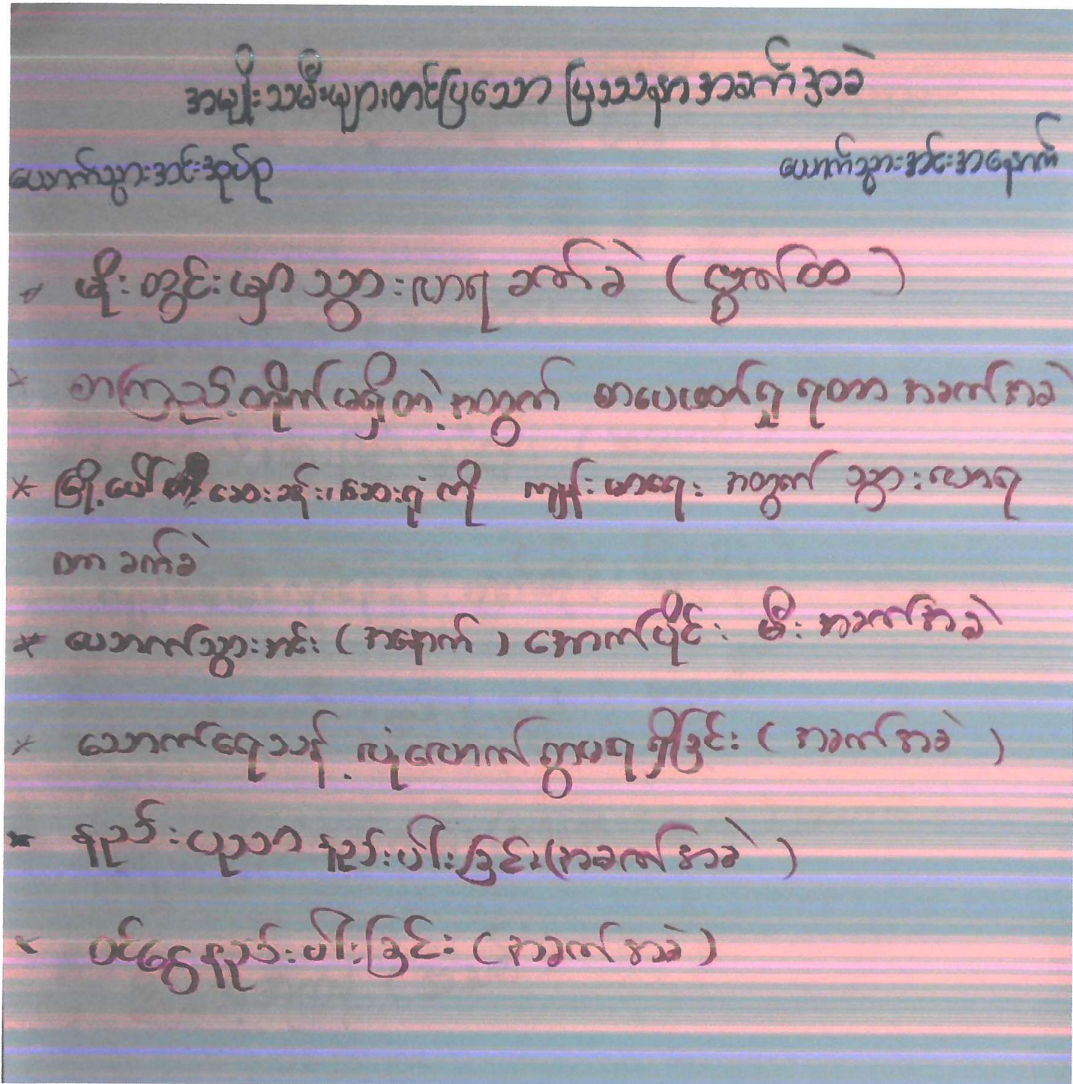 အမျိုးသမီးများတင်ပြသော ပြဿနာ အခက် အခဲ
ယောက်သွားအင်းအုပ်စု ယောက်သွားအင်းအနောက်
မိုးတွင်းမှာ သွားလာရ ခက်ခဲ (လွတ်ထ)
* စာကြည့်တိုက်မရှိတဲ့အတွက် စာပေဖတ်ရှု ရတာ အခက်အခဲ
* မြို့ပေါ် ဆေးခန်း၊ ဆေးရုံ ကို ကျန်းမာရေး အတွက် သွားလာရ
တာ ခက်ခဲ
* ယောက်သွားအင်း (အနောက်) အောက်ပိုင်း မီး အခက်အခဲ
* သောက်ရေသန့် လုံလောက်စွာမရရှိခြင်း (အခက်အခဲ)
* နည်းပညာ နည်းပါးခြင်း (အခက်အခဲ)
* ဝင်ငွေနည်းပါးခြင်း (အခက်အခဲ)